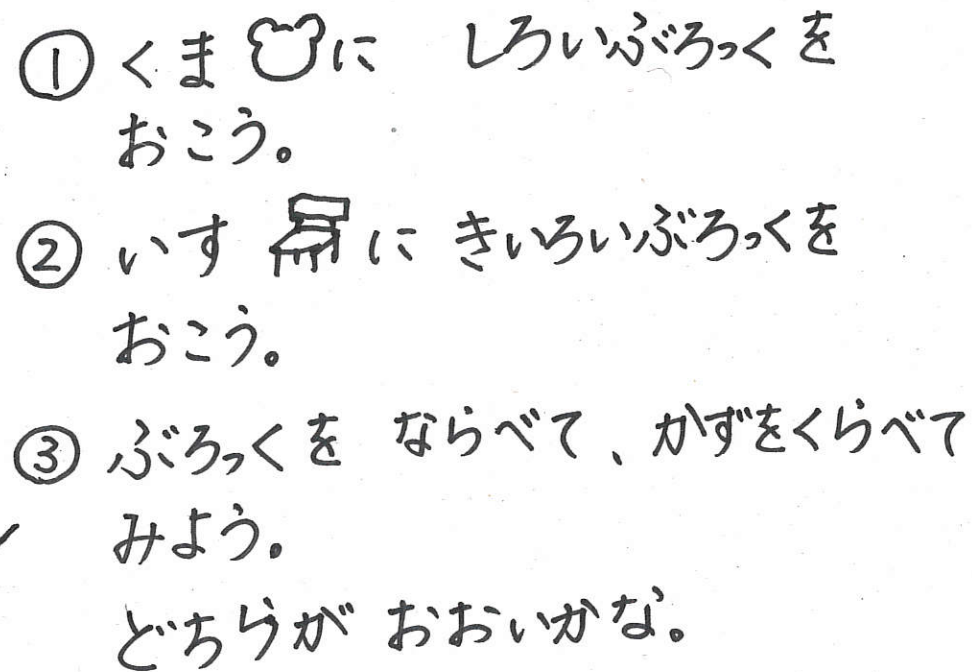 ① くま に しろいぶろっくを
おこう。
② いす に きいろいぶろっくを
おこう。
③ ぶろっくを ならべて、かずをくらべて
みよう。
どちらが おおいかな。